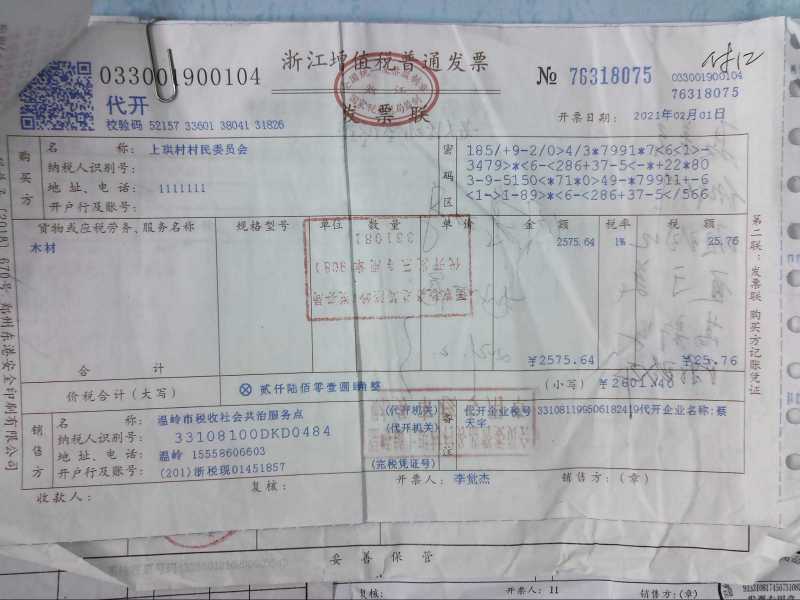 033001900104
浙江增值税普通发票
№ 76318075
033001900104
76318075
代开
发票联
校验码 52157 33601 38041 31826
开票日期: 2021年02月01日
购买方
名 称: 上珙村村民委员会
纳税人识别号:
地 址、电 话: 1111111
开户行及账号:
密码区
185/+9-2/0>4/3*7991*7<6<1>-
3479>*<6-<286+37-5<-*+22*80
3-9-5150<*71*0>49-*79911+-6
<1->1-89>*<6-<286+37-5</566
货物或应税劳务、服务名称 规格型号 单位 数 量 单 价 金 额 税率 税 额
木材 2575.64 1% 25.76
合 计 ¥2575.64 ¥25.76
价税合计(大写) ⊗ 贰仟陆佰零壹圆肆角整 (小写) ¥2601.40
销售方
名 称: 温岭市税收社会共治服务点 (代开机关)
纳税人识别号: 33108100DKD0484 (代开机关)
地 址、电 话: 温岭 15558606603
开户行及账号: (201)浙税现01451857 (完税凭证号)
备注
代开企业税号
代开企业名称:蔡
天宇
收款人: 复核: 开票人: 李觉杰 销售方:(章)
第二联:发票联 购买方记账凭证
郑州东港安全印刷有限公司
妥善保管
复核: 开票人: 11 销售方:(章)